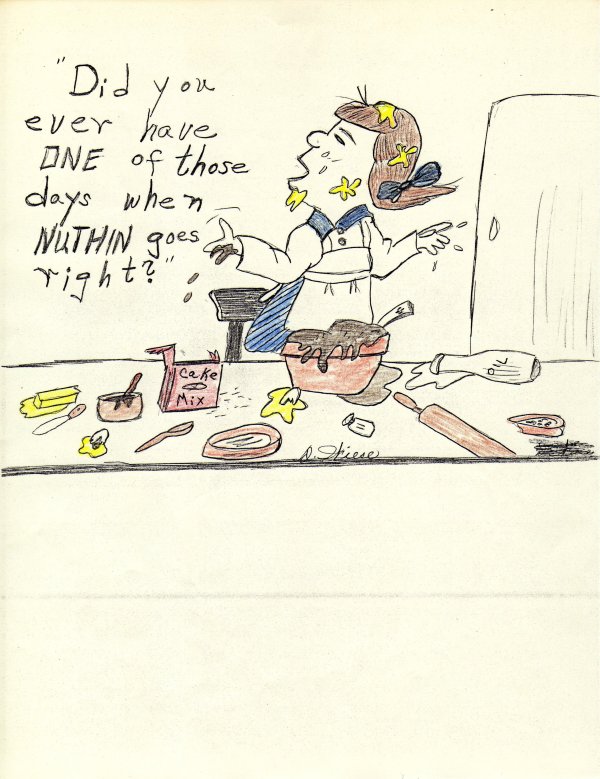 "Did you
ever have
ONE of those
days when
NUTHIN goes
right?"
Cake
Mix
OIL